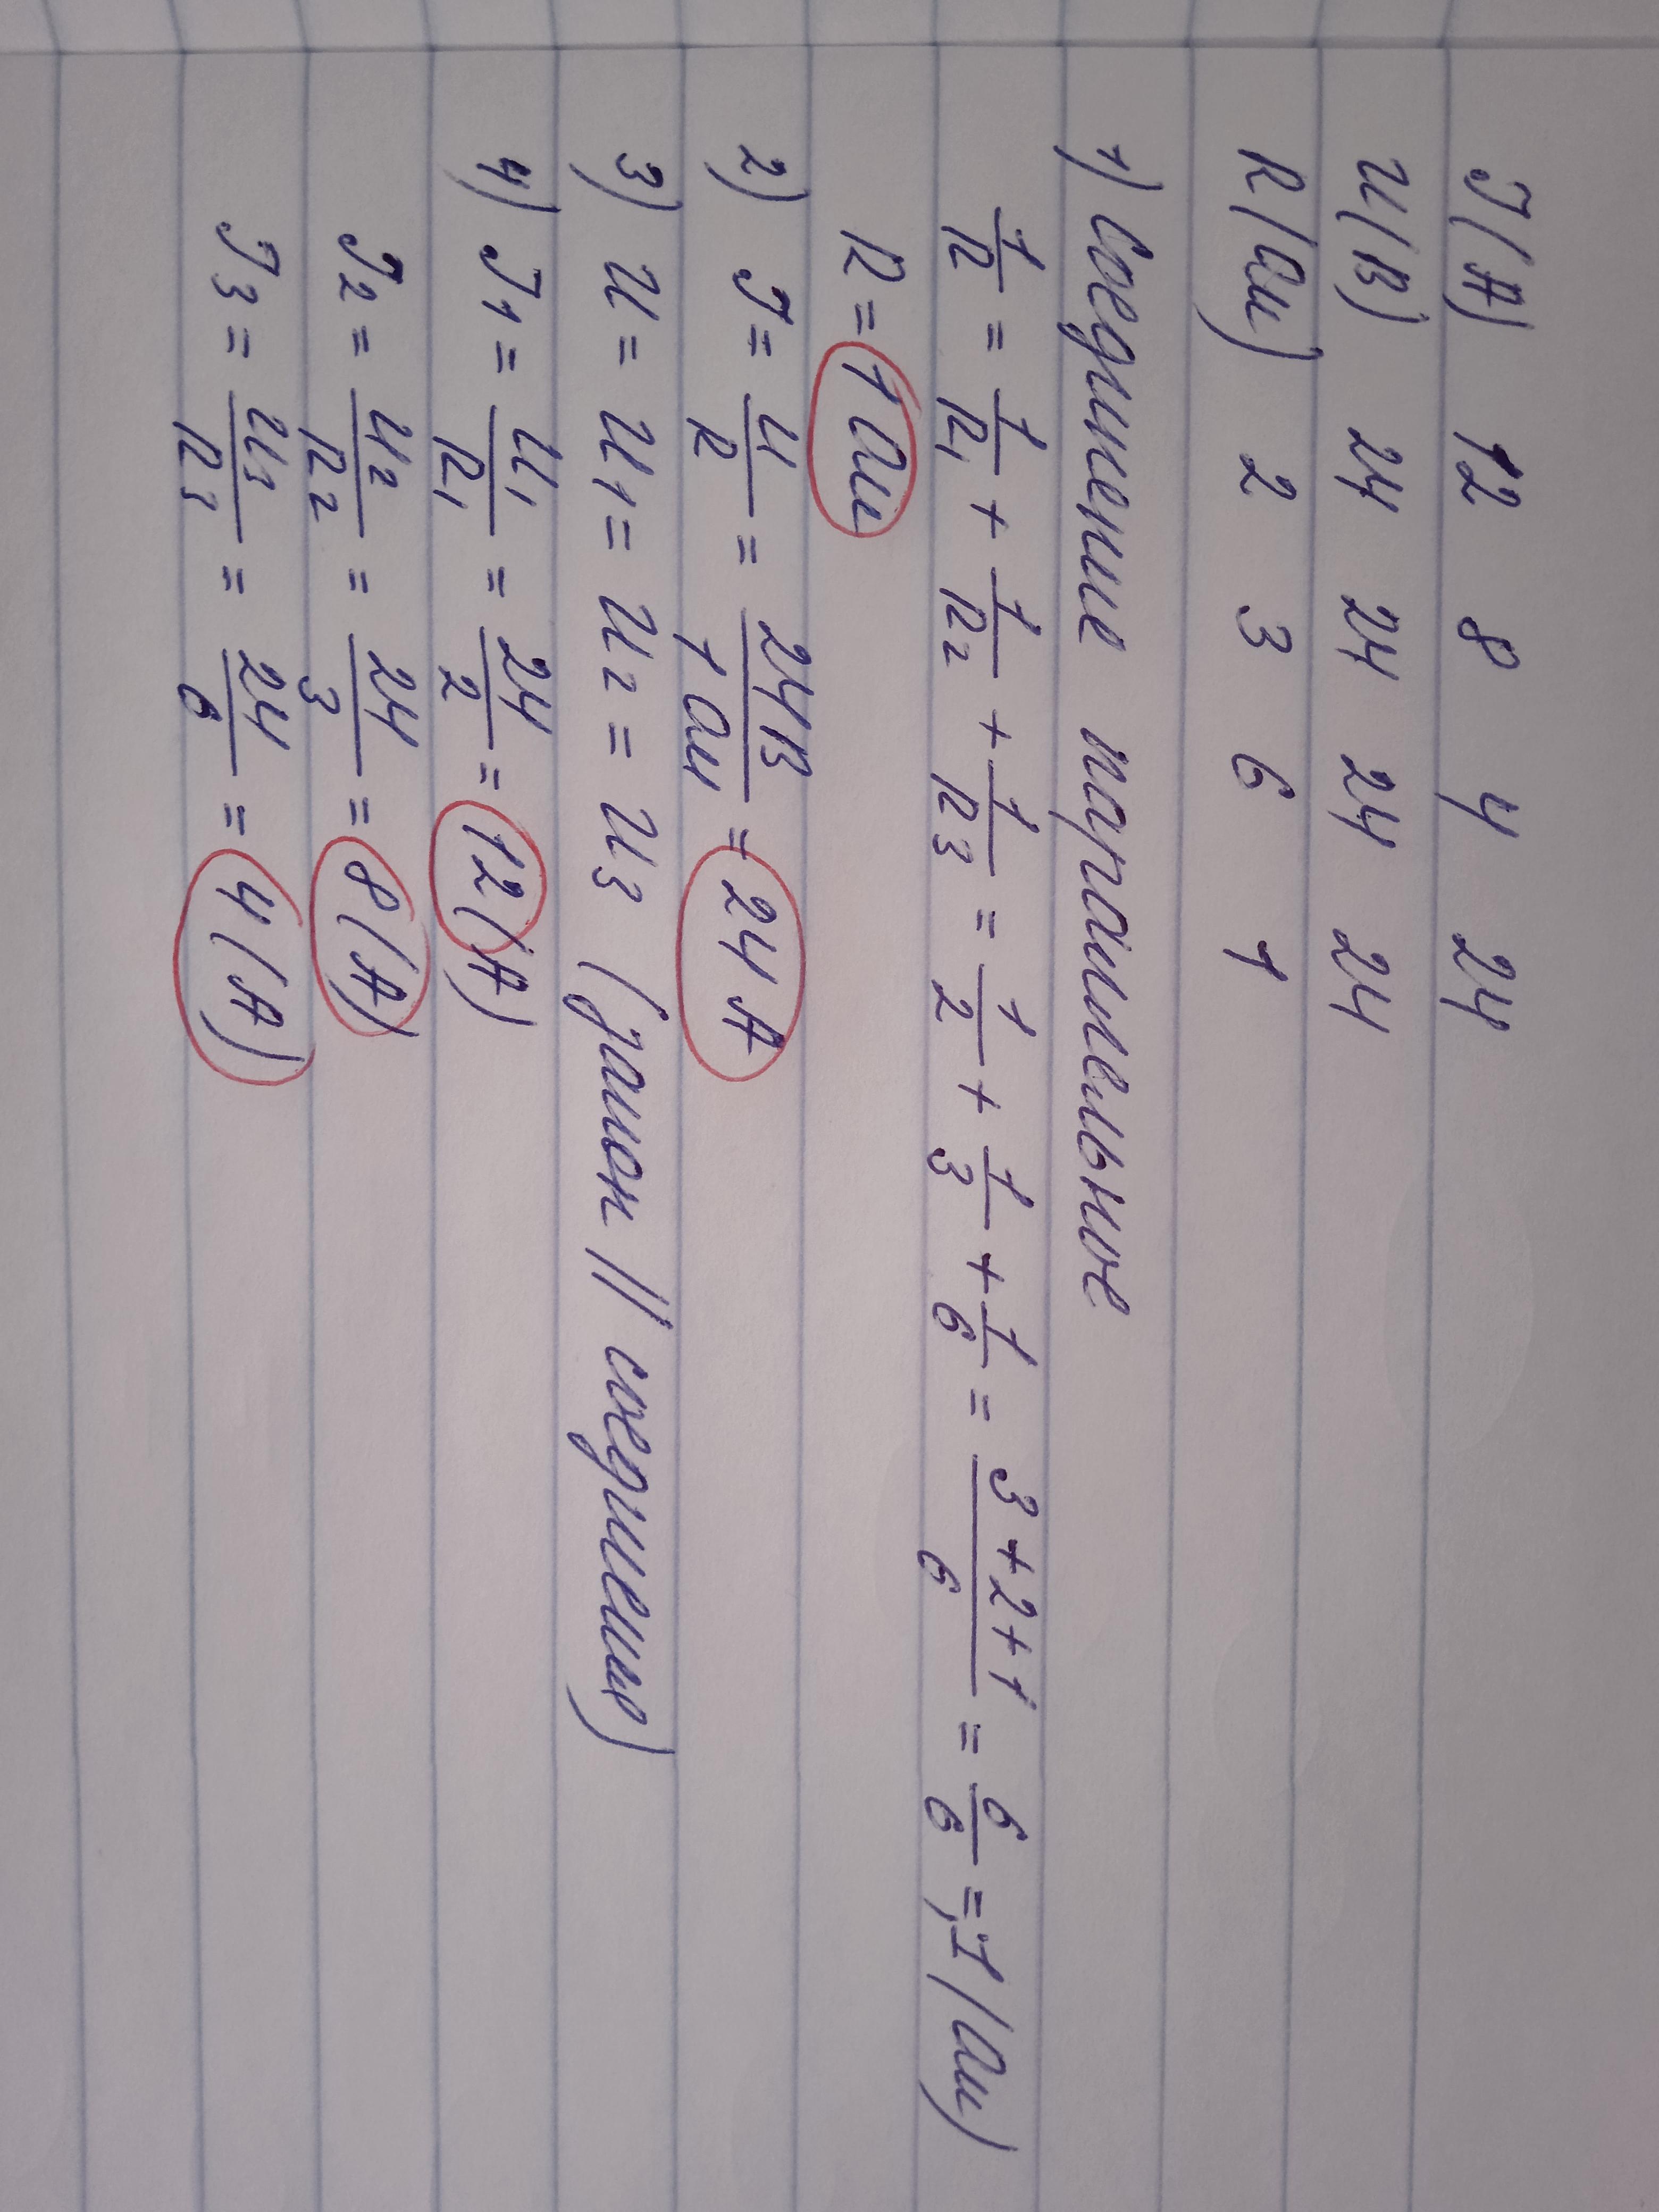 I(А) 12 8 4 24
U(В) 24 24 24 24
R(Ом) 2 3 6 1
1) Соединение параллельное
1/R = 1/R₁ + 1/R₂ + 1/R₃ = 1/2 + 1/3 + 1/6 = (3+2+1)/6 = 6/6 = 1 (Ом)
R = 1 Ом
2) I = U/R = 24В/1 Ом = 24 А
3) U = U₁ = U₂ = U₃ (закон || соединения)
4) I₁ = U₁/R₁ = 24/2 = 12(А)
I₂ = U₂/R₂ = 24/3 = 8(А)
I₃ = U₃/R₃ = 24/6 = 4(А)